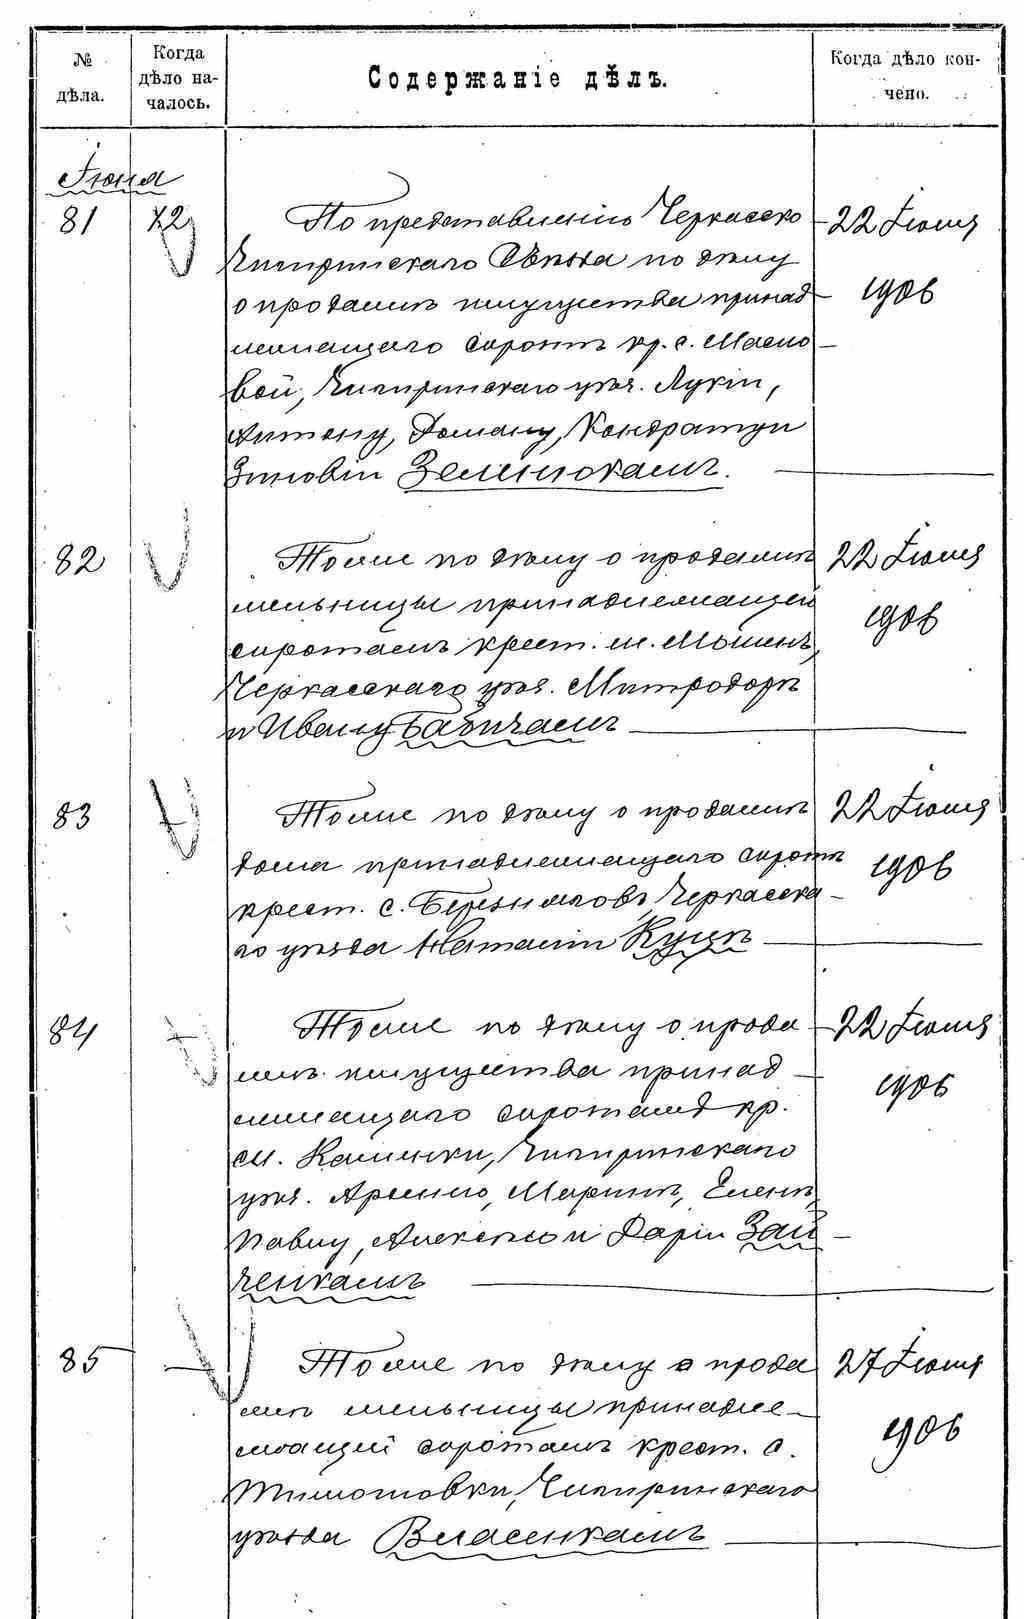 № дѣла.
Когда дѣло на-
чалось.
Содержаніе дѣлъ.
Когда дѣло кон-
чено.
Іюня
81 12 По представленію Черкасско 22 Іюня
Чигиринскаго Съѣзда по дѣлу
о продажѣ имущества принад 1906
лежащаго сиротѣ кр. с. Масло
вой, Чигиринскаго уѣз. Лукіи,
Антону, Роману, Кондрату и
Зиновіи Зелинскамъ.
82 Тоже по дѣлу о продажѣ 22 Іюня
мельницы принадлежащей 1906
сиротамъ крест. м. Мошенъ,
Черкасскаго уѣз. Митродорѣ
и Ивану Бабичамъ
83 Тоже по дѣлу о продажѣ 22 Іюня
дома принадлежащаго сиротѣ 1906
крест. с. Березняковъ, Черкасска
го уѣзда Наталіи Куцъ
84 Тоже по дѣлу о прода 22 Іюня
жѣ имущества принад 1906
лежащаго сиротамъ кр.
м. Каменки, Чигиринскаго
уѣз. Арсенію, Маринѣ, Еленѣ,
Павлу, Алексѣю и Даріи Зай
ченкамъ
85 Тоже по дѣлу о прода 27 Іюня
жѣ мельницы принадле 1906
жащей сиротамъ крест. с.
Тимошовки, Чигиринскаго
уѣзда Власенкамъ